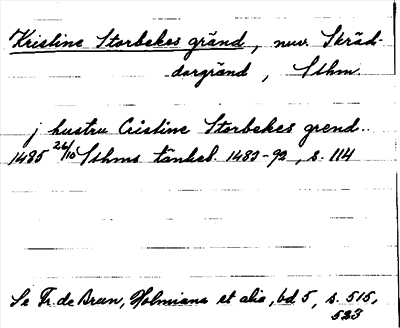 Kristine Storbekes gränd, nuv. Skräd-
dargränd, Sthm.
j hustru Cristine Storbekes grend..
1485 26/10 Sthms tänkeb. 1483-92, s. 114
Se Fr. de Brun, Holmiana et alia, bd 5, s. 515,
523